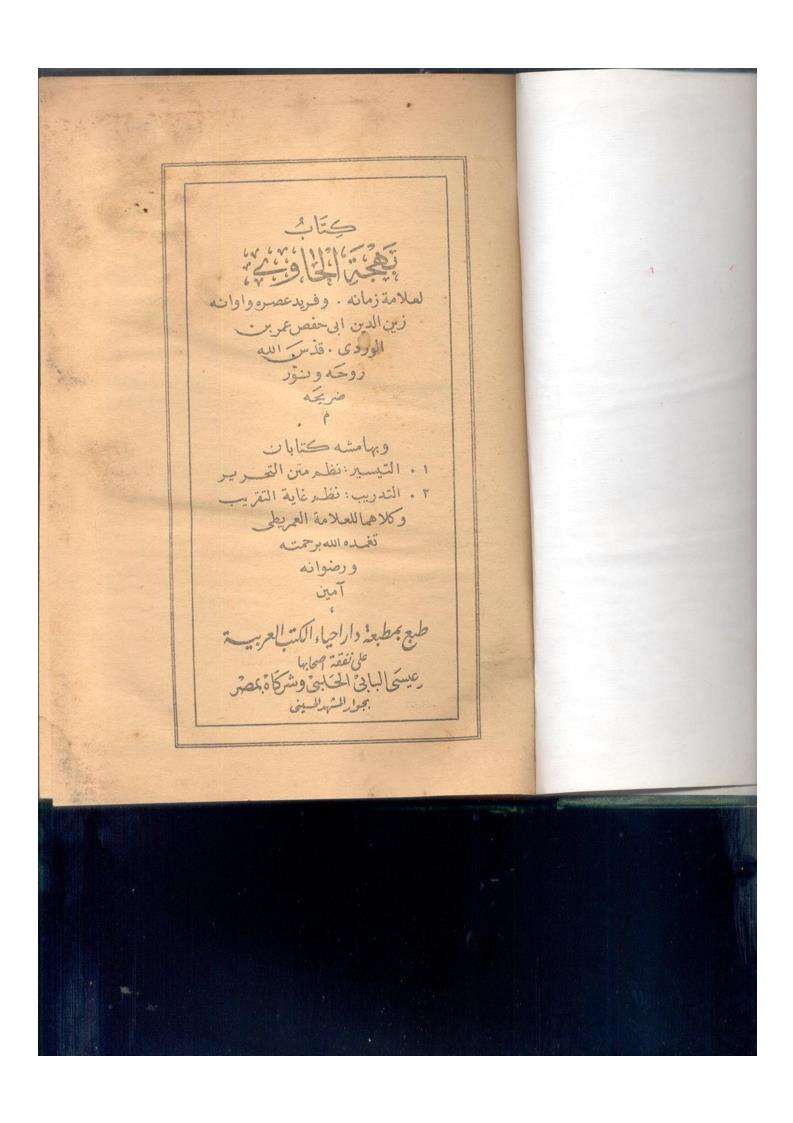 كِتَابُ
بَهْجَةِ الْحَاوِي
لعلامة زمانه . وفريد عصره واوانه
زين الدين ابى حفص عمر بن
الوردى . قدّس الله
روحه ونوّر
ضريحه
م
وبهامشه كتابان
١ . التيسير : نظم متن التحرير
٢ . التدريب : نظم غاية التقريب
وكلاهما للعلامة العمريطى
تغمده الله برحمته
ورضوانه
آمين
طبع بمطبعة دار احياء الكتب العربية
على نفقة اصحابها
عيسى البابى الحلبى وشركاه بمصر
بجوار المشهد الحسينى